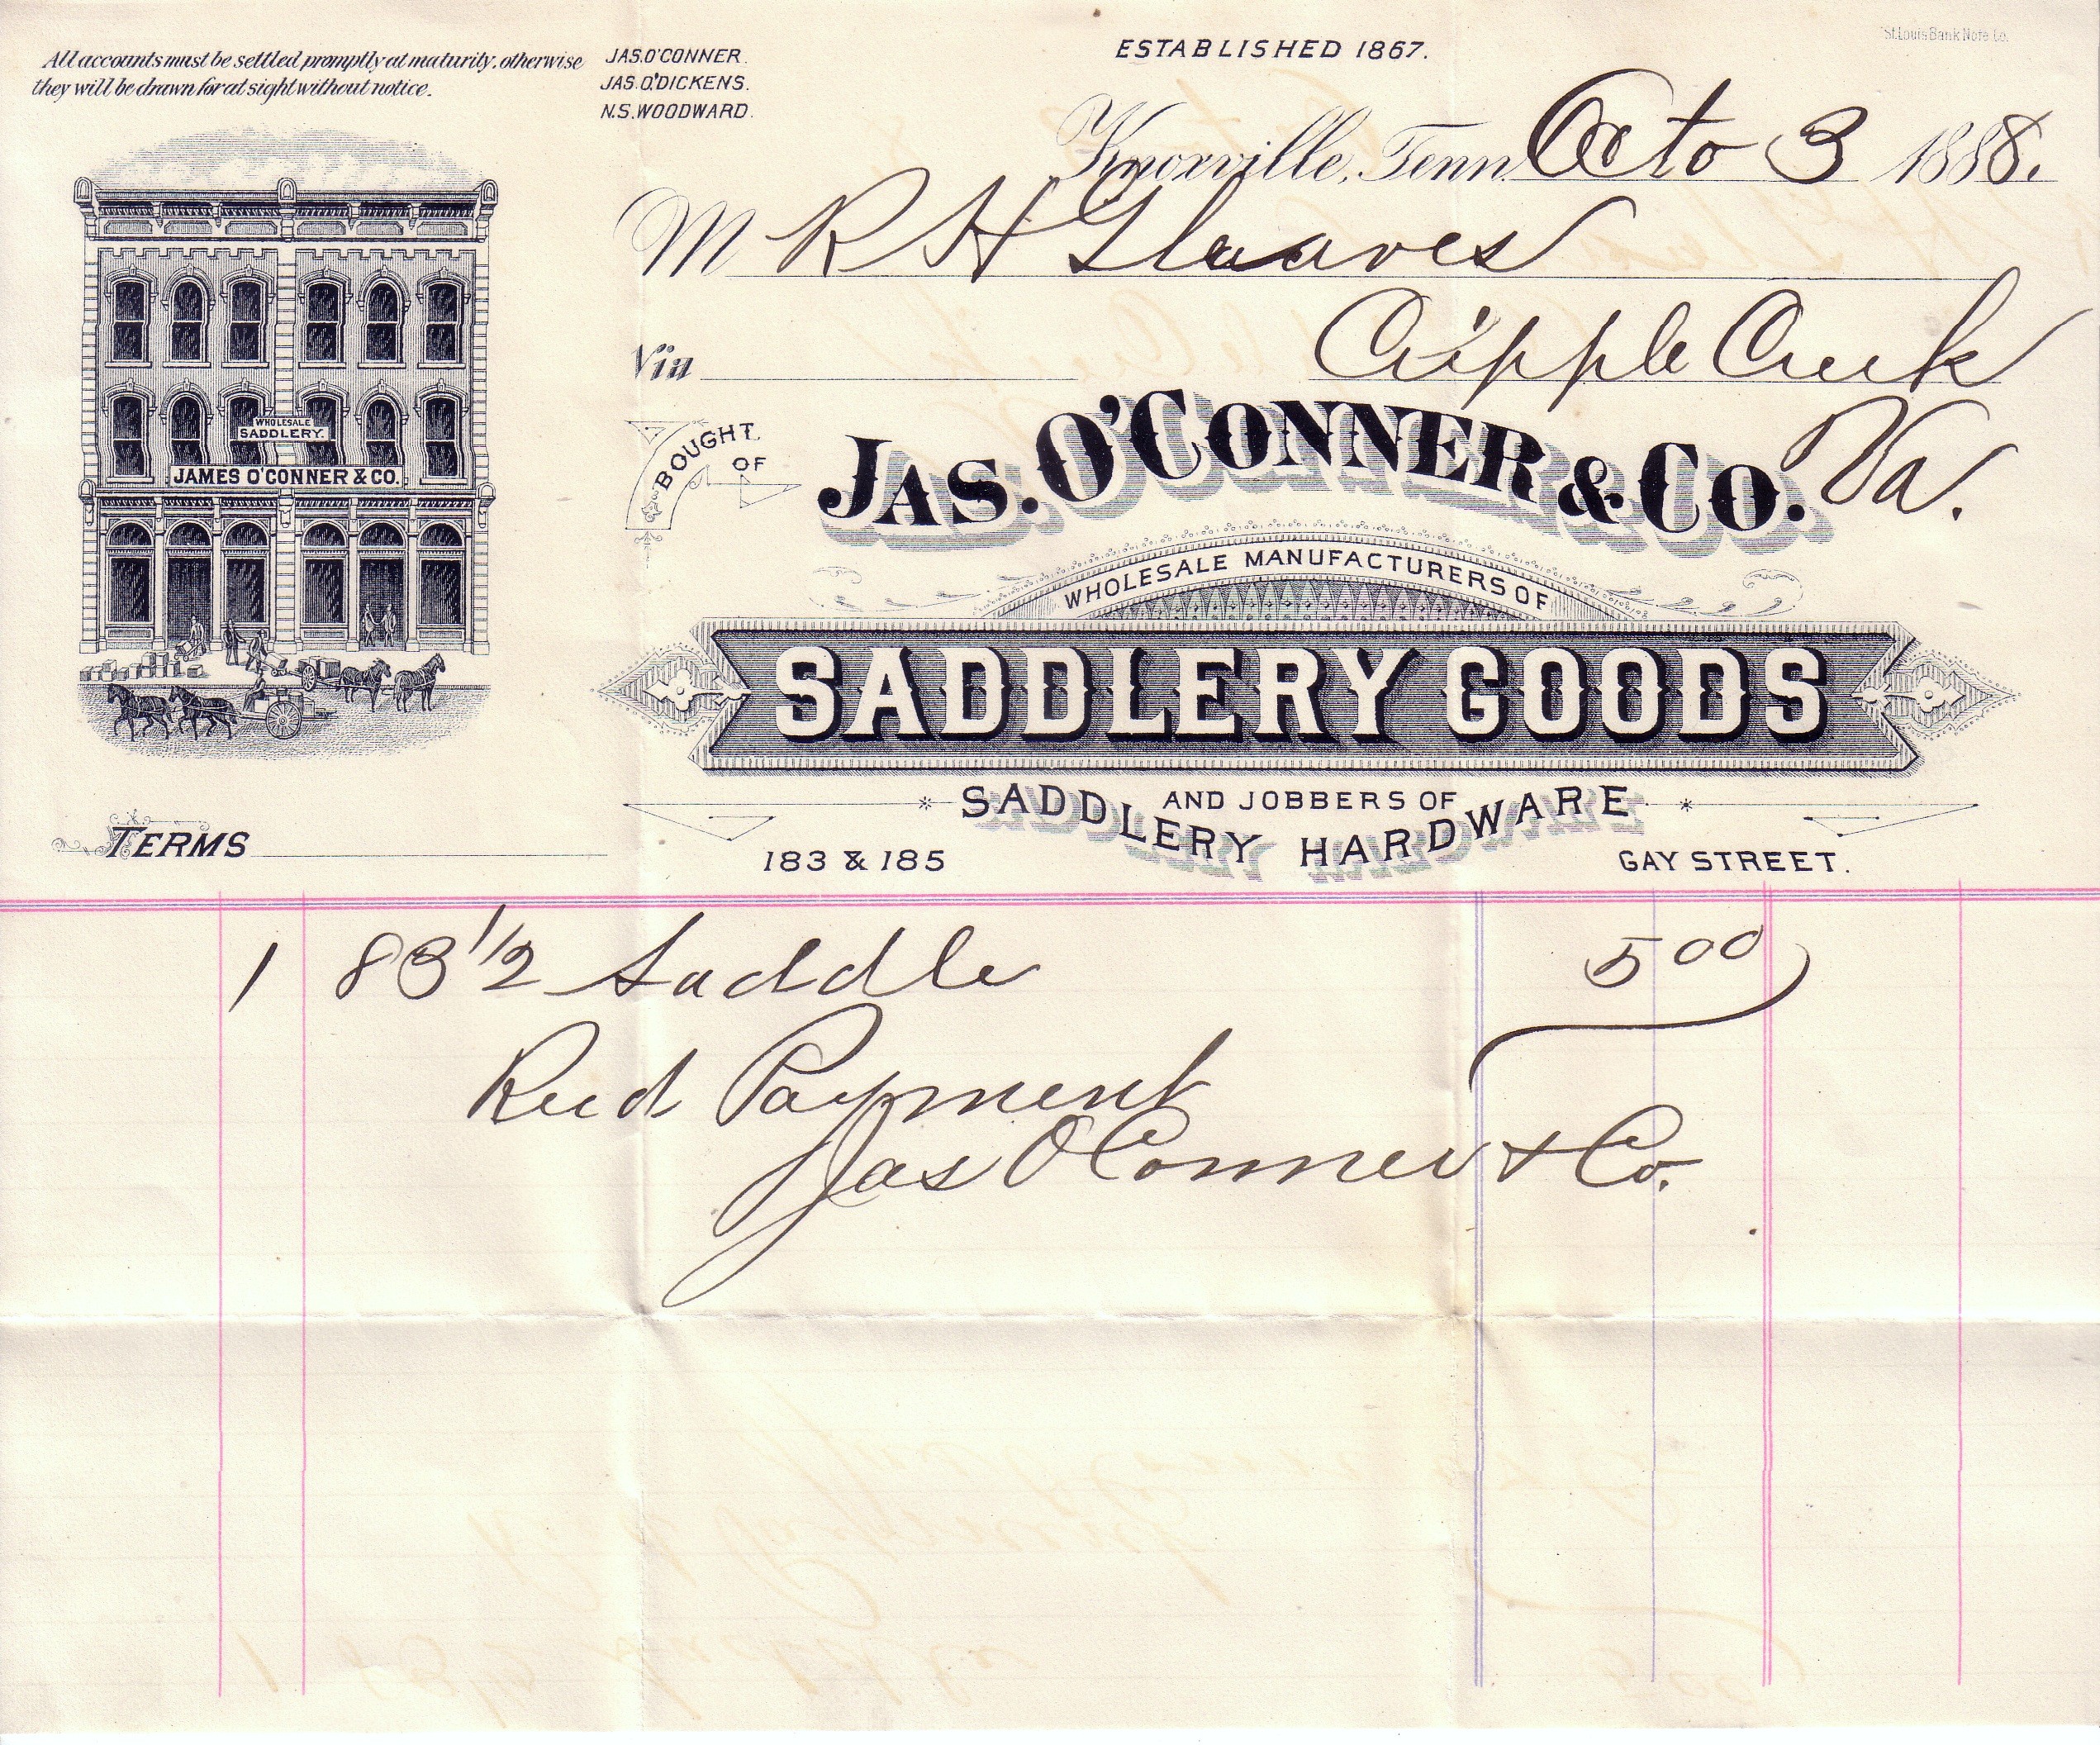 All accounts must be settled promptly at maturity, otherwise
they will be drawn for at sight without notice.
JAS. O'CONNER.
JAS. O'DICKENS.
N.S. WOODWARD.
ESTABLISHED 1867.
St. Louis Bank Note Co.
Knoxville, Tenn. Octo 3 1888.
M R H Gleaves
Via Cripple Creek
Va.
WHOLESALE
SADDLERY.
JAMES O'CONNER & CO.
BOUGHT OF
JAS. O'CONNER & CO.
WHOLESALE MANUFACTURERS OF
SADDLERY GOODS
AND JOBBERS OF
SADDLERY HARDWARE
TERMS
183 & 185 GAY STREET.
1 83 1/2 Saddle 5 00
Recd Payment
Jas O'Conner & Co.